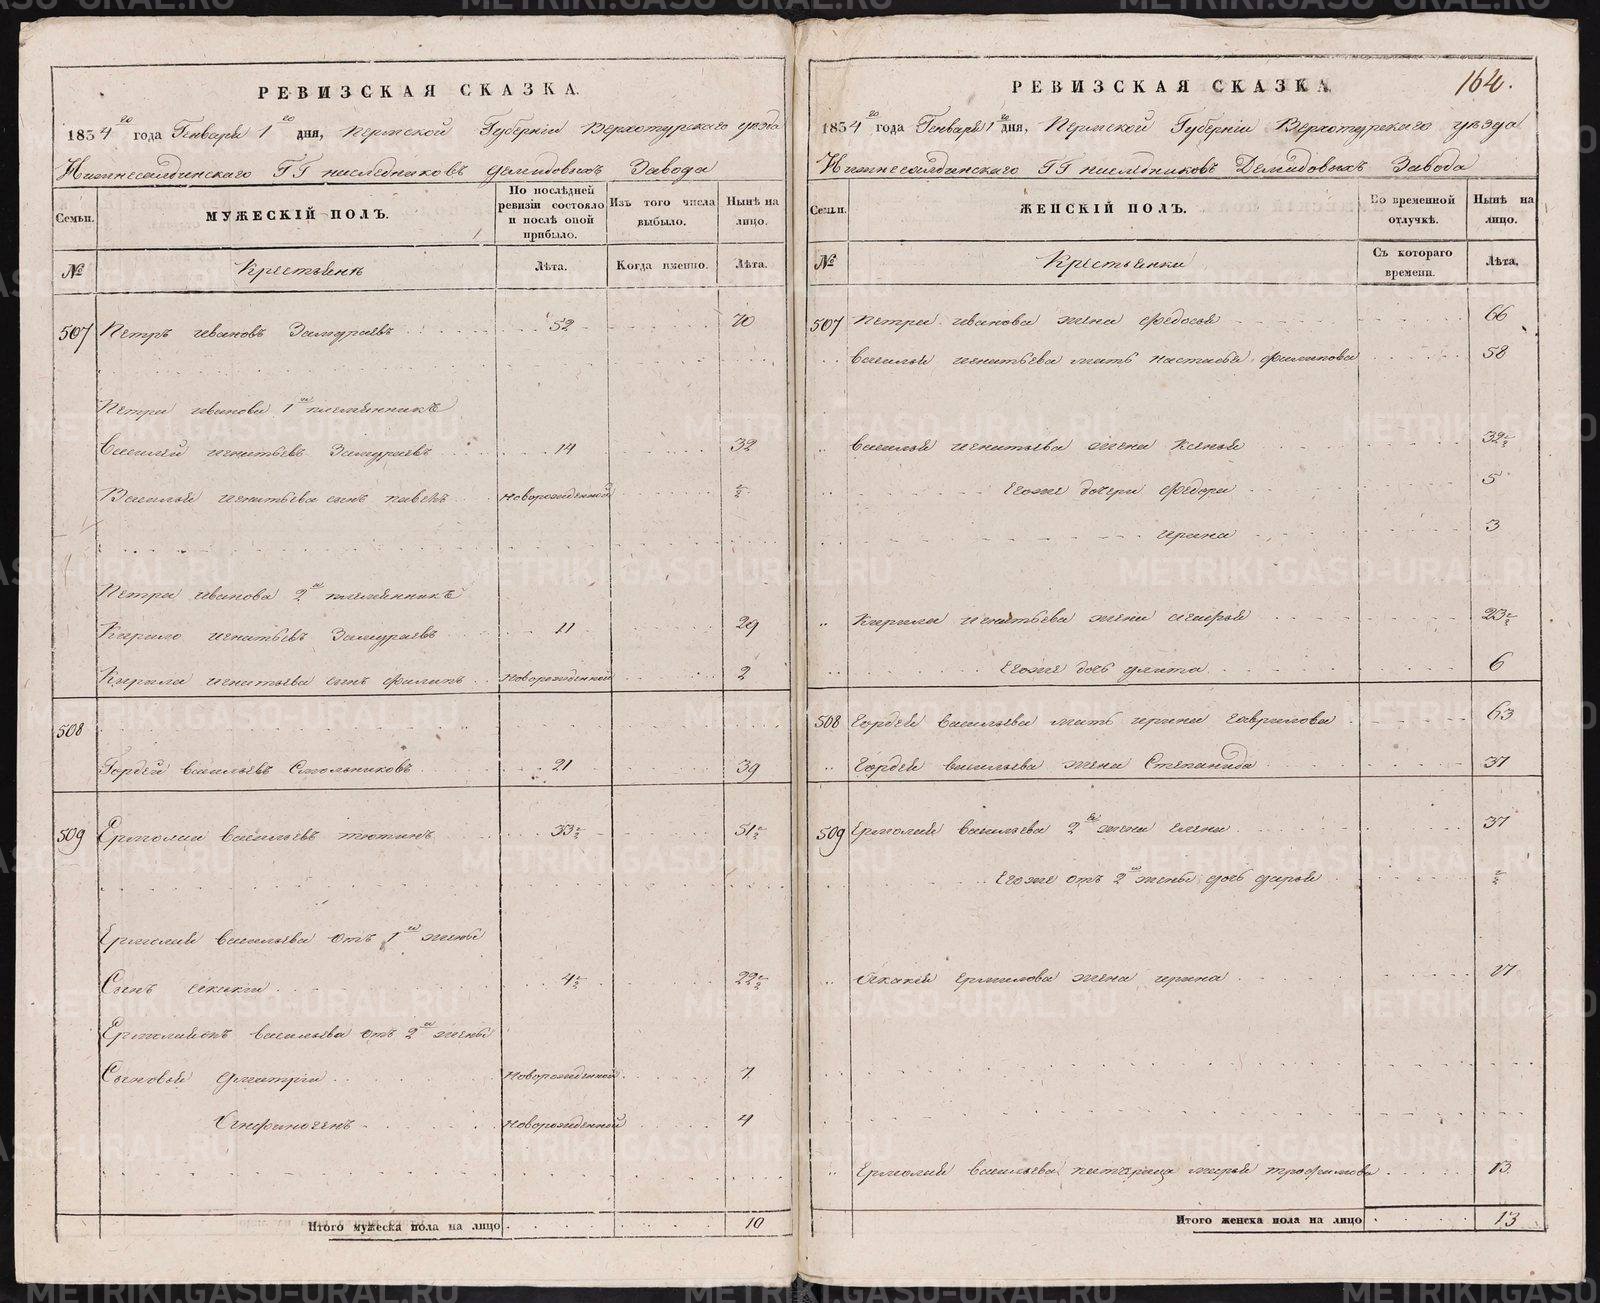 РЕВИЗСКАЯ СКАЗКА.
1834го года Генваря 1го дня, Пермской Губерніи Верхотурскаго уѣзда
Нижнесалдинскаго ГГ наслѣдниковъ Демидовыхъ Завода
Семьи.
МУЖЕСКІЙ ПОЛЪ.
По послѣдней ревизіи состояло и послѣ оной прибыло.
Изъ того числа выбыло.
Нынѣ на лицо.
№
Крестьянъ
Лѣта.
Когда именно.
Лѣта.
507 Петръ Ивановъ Замураевъ 52 70
Петра Иванова 1й племянникъ
Василей Игнатьевъ Замураевъ 14 32
Василья Игнатьева сынъ Павелъ Новорожденной ½
Петра Иванова 2й племянникъ
Кирило Игнатьевъ Замураевъ 11 29
Кирила Игнатьева сынъ Филипъ Новорожденной 2
508
Гордей Васильевъ Стольниковъ 21 39
509 Ермолай Васильевъ Тютинъ 33½ 51½
Ермолая Васильева отъ 1й жены
Сынъ Акакій 4½ 22½
Васильева отъ 2й жены
Сыновья Дмитрій Новорожденной 7
Анфиногенъ Новорожденной 4
Итого мужеска пола на лицо 10
164.
РЕВИЗСКАЯ СКАЗКА
1834го года Генваря 1го дня, Пермской Губерніи Верхотурскаго уѣзда
Нижнесалдинскаго ГГ наслѣдниковъ Демидовыхъ Завода
Семьи.
ЖЕНСКІЙ ПОЛЪ.
Во временной отлучкѣ.
Нынѣ на лицо.
№
Крестьянки
Съ котораго времени.
Лѣта.
507 Петра Иванова жена Федосья 66
Василья Игнатьева мать Настасья Филипова 58
Василья Игнатьева жена Ксенья 32½
Егоже дочери Федора 5
Ирина 3
Кирила Игнатьева жена Агафья 23½
Егоже дочь Улита 6
508 Гордея Васильева мать Ирина Гаврилова 63
Гордея Васильева жена Степанида 37
509 Ермолая Васильева 2я жена Елена 37
Егоже отъ 2й жены дочь Дарья ½
Акакія Ермилова жена Ирина 17
Ермолая Васильева Марья Трофимова 13
Итого женска пола на лицо 13
METRIKI.GASO-URAL.RU